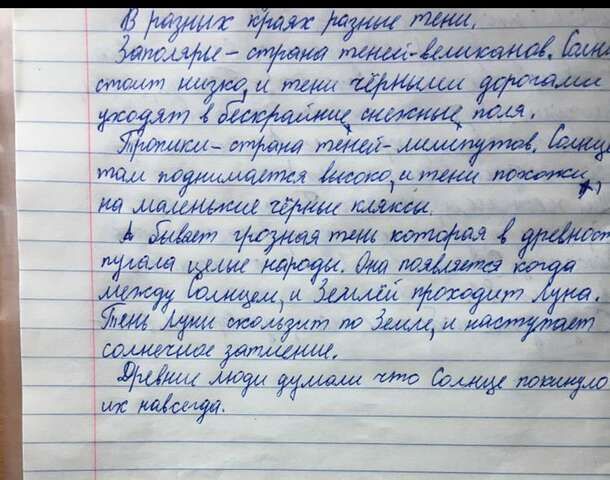 В разных краях разные тени.
Заполярье – страна теней-великанов. Солн
стоит низко, и тени чёрными дорогами
уходят в бескрайние, снежные, поля.
Тропики – страна теней – лилипутов. Солнце
там поднимается высоко, и тени похожи,
на маленькие чёрные кляксы.
А бывает грозная тень которая в древност
пугала целые народы. Она появляется когда
между Солнцем, и Землёй проходит Луна.
Тень Луны скользит по Земле, и наступает
солнечное затмение.
Древние люди думали что Солнце покинуло
их навсегда.